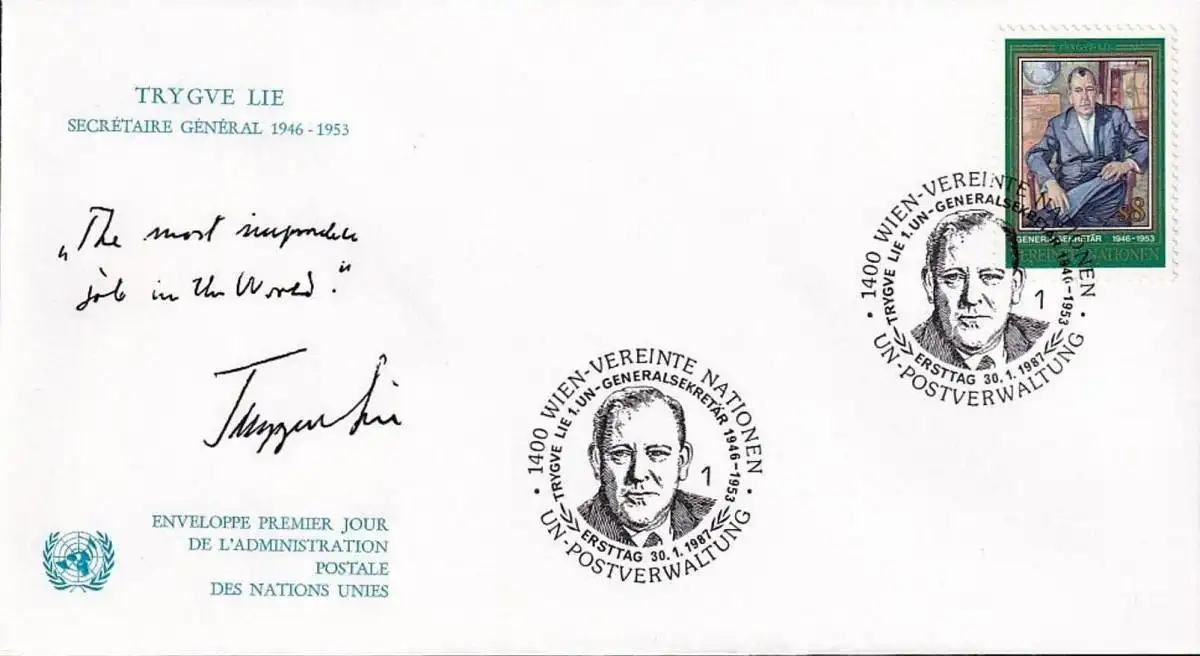 TRYGVE LIE
SECRÉTAIRE GÉNÉRAL 1946 - 1953
„The most impossible
job in the World."
Trygve Lie
ENVELOPPE PREMIER JOUR
DE L'ADMINISTRATION
POSTALE
DES NATIONS UNIES
· 1400 WIEN-VEREINTE NATIONEN ·
TRYGVE LIE 1. UN-GENERALSEKRETÄR 1946-1953
1
ERSTTAG 30.1.1987
UN-POSTVERWALTUNG
TRYGVE LIE
s8
GENERALSEKRETÄR 1946-1953
VEREINTE NATIONEN
· 1400 WIEN-VEREINTE NATIONEN ·
TRYGVE LIE 1. UN-GENERALSEKRETÄR 1946-1953
1
ERSTTAG 30.1.1987
UN-POSTVERWALTUNG